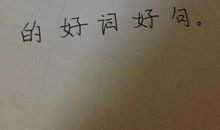 的好词好句。